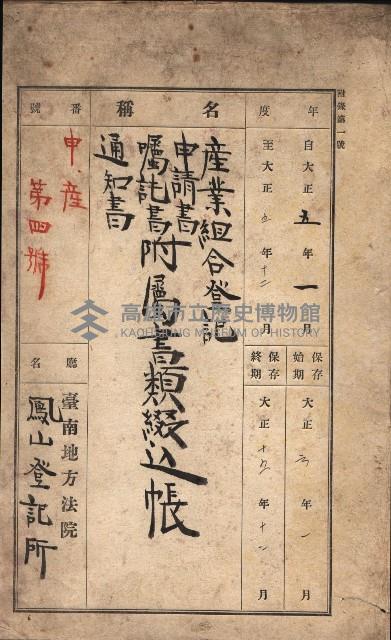 附錄第一號
年度
自大正五年一月
至大正五年十二月
保存始期
大正六年一月
保存終期
大正十五年十二月
名稱
産業組合登記
申請書
囑託書附屬書類綴込帳
通知書
番號
申産
第四號
廳名
臺南地方法院
鳳山登記所
高雄市立歷史博物館
KAOHSIUNG MUSEUM OF HISTORY